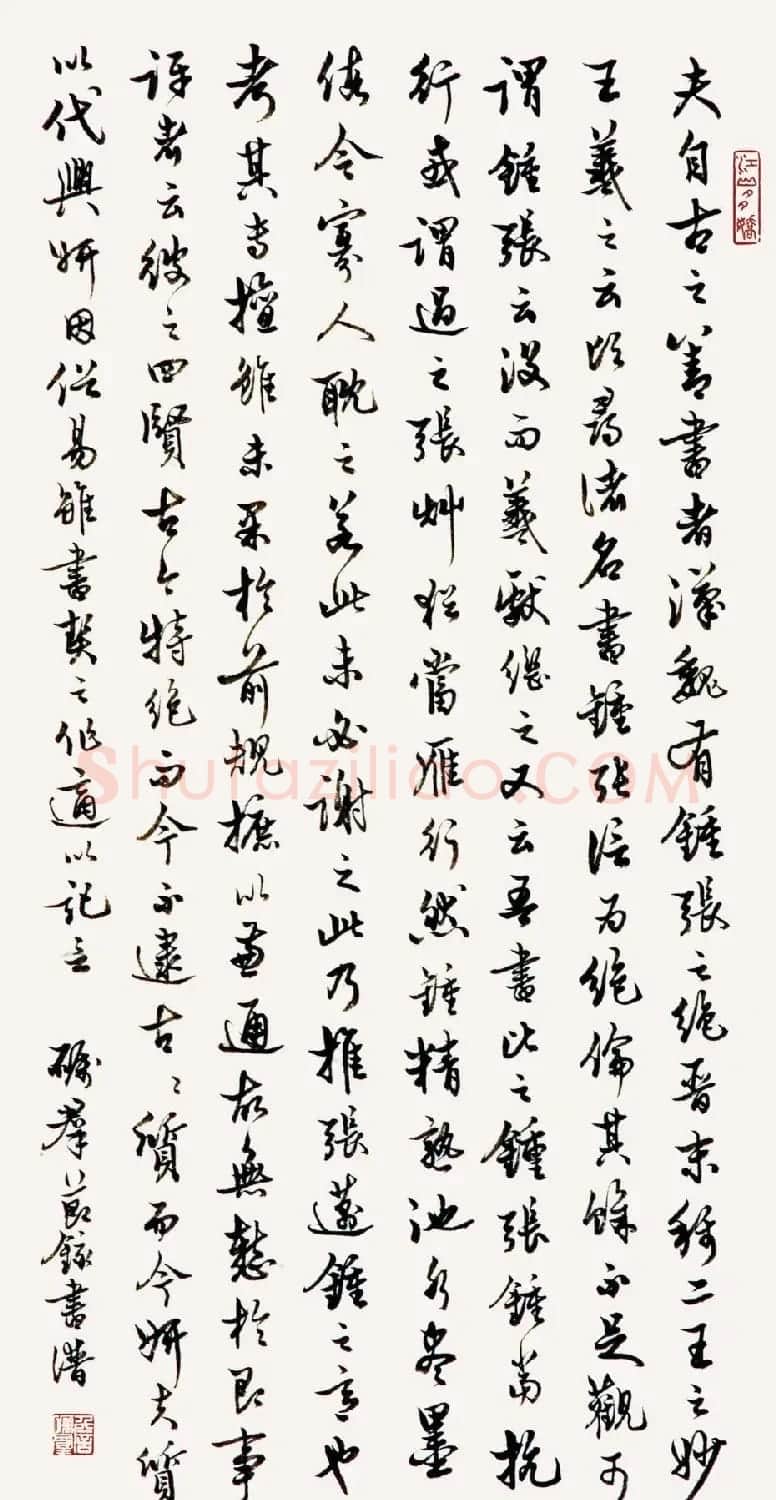 夫自古之善書者漢魏有鍾張之絶晉末稱二王之妙
王羲之云頃尋諸名書鍾張信为絶倫其餘不足觀可
謂鍾張云没而羲獻继之又云吾書比之鍾張鍾當抗
行或謂過之張艸猶當雁行然鍾精熟池水盡墨
假令寡人耽之若此未必謝之此乃推張邁鍾之意也
考其专擅雖未果於前規摭以兼通故無慙於即事
評者云彼之四賢古今特绝而今不逮古〻質而今妍夫質
以代興妍因俗易雖書契之作適以記言
群節録書譜
江山多嬌
Shufaziliao.COM